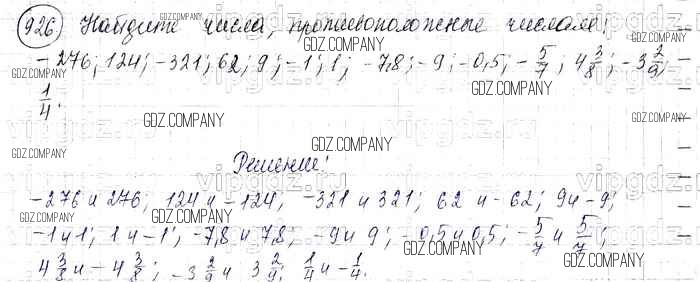 926. Найдите числа, противоположные числам:
GDZ.COMPANY
-276; 124; -321; 62; 9; -1; 1; -7,8; -9; -0,5; -5/7; 4 3/8; -3 2/9;
GDZ.COMPANY
GDZ.COMPANY
1/4.
GDZ.COMPANY
GDZ.COMPANY
GDZ.COMPANY
GDZ.COMPANY
Решение:
-276 и 276; 124 и -124; -321 и 321; 62 и -62; 9 и -9;
GDZ.COMPANY
-1 и 1; 1 и -1; -7,8 и 7,8; -9 и 9; -0,5 и 0,5; -5/7 и 5/7;
GDZ.COMPANY
GDZ.COMPANY
4 3/8 и -4 3/8; -3 2/9 и 3 2/9; 1/4 и -1/4.
GDZ.COMPANY